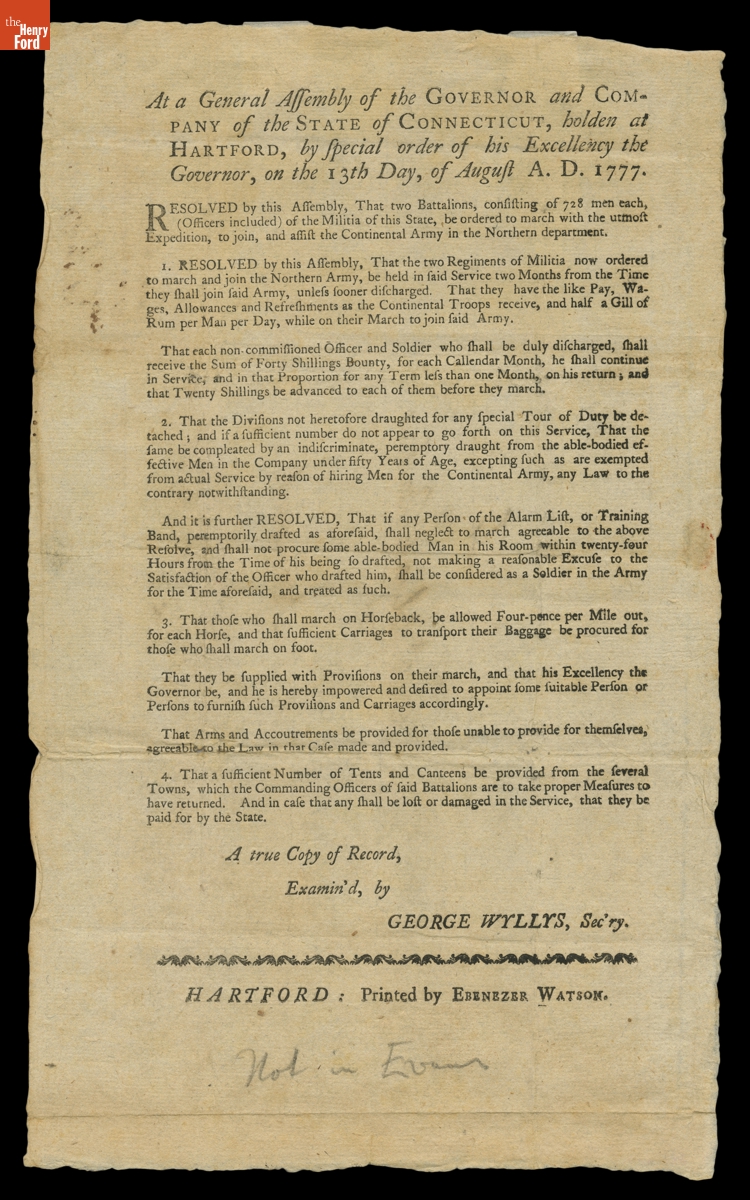 the
Henry
Ford
At a General Aſſembly of the GOVERNOR and COM-
PANY of the STATE of CONNECTICUT, holden at
HARTFORD, by ſpecial order of his Excellency the
Governor, on the 13th Day, of Auguſt A. D. 1777.
RESOLVED by this Aſſembly, That two Battalions, conſiſting of 728 men each,
(Officers included) of the Militia of this State, be ordered to march with the utmoſt
Expedition, to join, and aſſiſt the Continental Army in the Northern department.
1. RESOLVED by this Aſſembly, That the two Regiments of Militia now ordered
to march and join the Northern Army, be held in ſaid Service two Months from the Time
they ſhall join ſaid Army, unleſs ſooner diſcharged. That they have the like Pay, Wa-
ges, Allowances and Refreſhments as the Continental Troops receive, and half a Gill of
Rum per Man per Day, while on their March to join ſaid Army.
That each non-commiſſioned Officer and Soldier who ſhall be duly diſcharged, ſhall
receive the Sum of Forty Shillings Bounty, for each Callendar Month, he ſhall continue
in Service, and in that Proportion for any Term leſs than one Month, on his return; and
that Twenty Shillings be advanced to each of them before they march.
2. That the Diviſions not heretofore draughted for any ſpecial Tour of Duty be de-
tached; and if a ſufficient number do not appear to go forth on this Service, That the
ſame be compleated by an indiſcriminate, peremptory draught from the able-bodied ef-
fective Men in the Company under fifty Years of Age, excepting ſuch as are exempted
from actual Service by reaſon of hiring Men for the Continental Army, any Law to the
contrary notwithſtanding.
And it is further RESOLVED, That if any Perſon of the Alarm Liſt, or Training
Band, peremptorily drafted as aforeſaid, ſhall neglect to march agreeable to the above
Reſolve, and ſhall not procure ſome able-bodied Man in his Room within twenty-four
Hours from the Time of his being ſo drafted, not making a reaſonable Excuſe to the
Satisfaction of the Officer who drafted him, ſhall be conſidered as a Soldier in the Army
for the Time aforeſaid, and treated as ſuch.
3. That thoſe who ſhall march on Horſeback, be allowed Four-pence per Mile out,
for each Horſe, and that ſufficient Carriages to tranſport their Baggage be procured for
thoſe who ſhall march on foot.
That they be ſupplied with Proviſions on their march, and that his Excellency the
Governor be, and he is hereby impowered and deſired to appoint ſome ſuitable Perſon or
Perſons to furniſh ſuch Proviſions and Carriages accordingly.
That Arms and Accoutrements be provided for thoſe unable to provide for themſelves,
agreeable to the Law in that Caſe made and provided.
4. That a ſufficient Number of Tents and Canteens be provided from the ſeveral
Towns, which the Commanding Officers of ſaid Battalions are to take proper Meaſures to
have returned. And in caſe that any ſhall be loſt or damaged in the Service, that they be
paid for by the State.
A true Copy of Record,
Examin'd, by
GEORGE WYLLYS, Sec'ry.
HARTFORD: Printed by EBENEZER WATSON.
Not in Evans